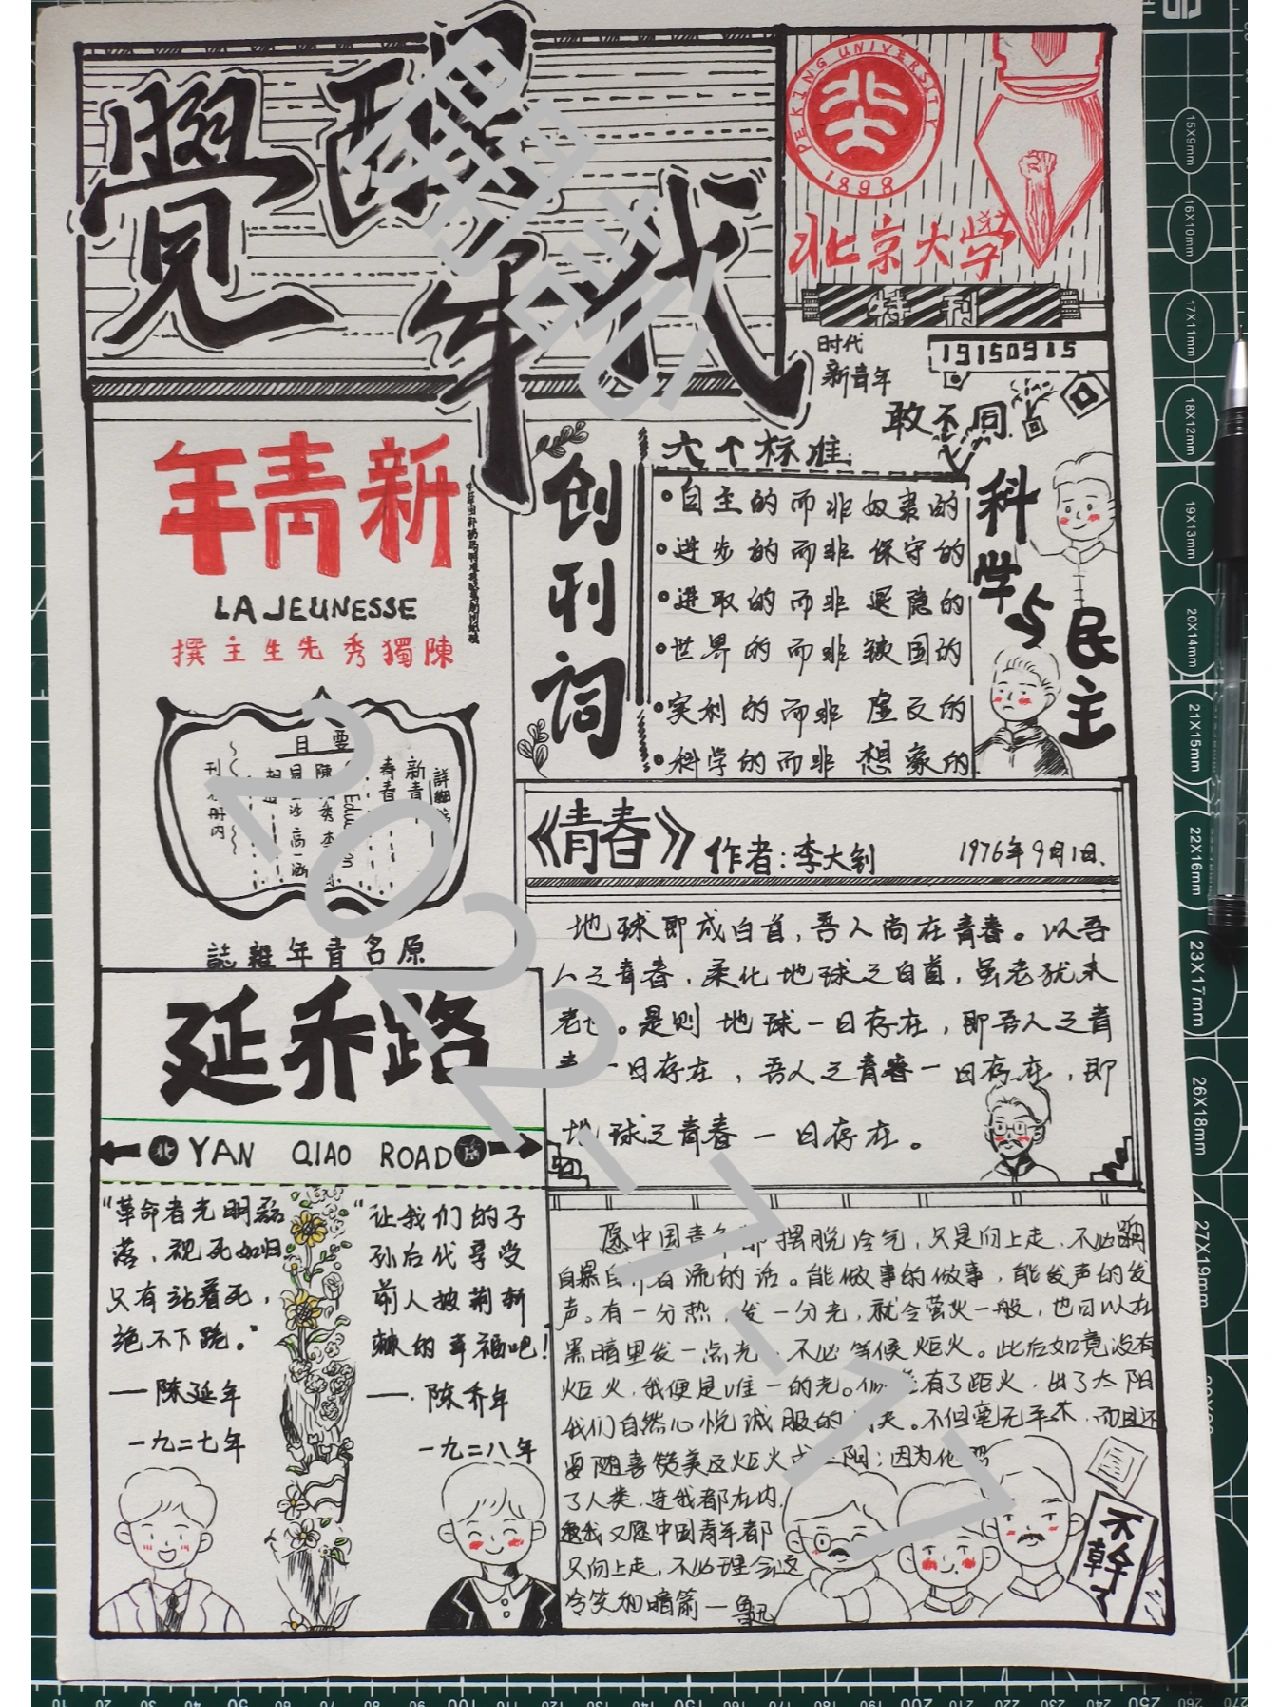 覺醒年代
PEKING UNIVERSITY
北大
1898
北京大学
特刊
时代
新青年
19150915
敢不同
年青新
LA JEUNESSE
撰主生先秀獨陳
要目
新青
青春
刊册内
誌雜年青名原
创刊词
六个标准
•自主的而非奴隶的
•进步的而非保守的
•进取的而非退隐的
•世界的而非锁国的
•实利的而非虚文的
•科学的而非想象的
科学与民主
《青春》作者:李大钊 1976年9月1日.
地球即成白首,吾人尚在青春。以吾
人之青春,柔化地球之白首,虽老犹未
老也。是则地球一日存在,即吾人之青
春一日存在,吾人之青春一日存在,即
地球之青春一日存在。
延乔路
北 YAN QIAO ROAD 南
“革命者光明磊
落,视死如归,
只有站着死,
绝不下跪。”
——陈延年
一九二七年
“让我们的子
孙后代享受
前人披荆斩
棘的幸福吧!
——陈乔年
一九二八年
愿中国青年都摆脱冷气,只是向上走,不必听
自暴自弃者流的话。能做事的做事,能发声的发
声。有一分热,发一分光,就令萤火一般,也可以在
黑暗里发一点光,不必等候炬火。此后如竟没有
炬火,我便是唯一的光。倘若有了距火,出了太阳
我们自然心悦诚服的消失。不但毫无不平,而且还
要随喜赞美这炬火或太阳;因为他照
了人类,连我都在内.
我又愿中国青年都
只向上走,不必理会这
冷笑和暗箭—鲁迅
不幹了
2022-11-17
15X9mm
16X10mm
17X11mm
18X12mm
19X13mm
20X14mm
21X15mm
22X16mm
23X17mm
26X18mm
27X19mm